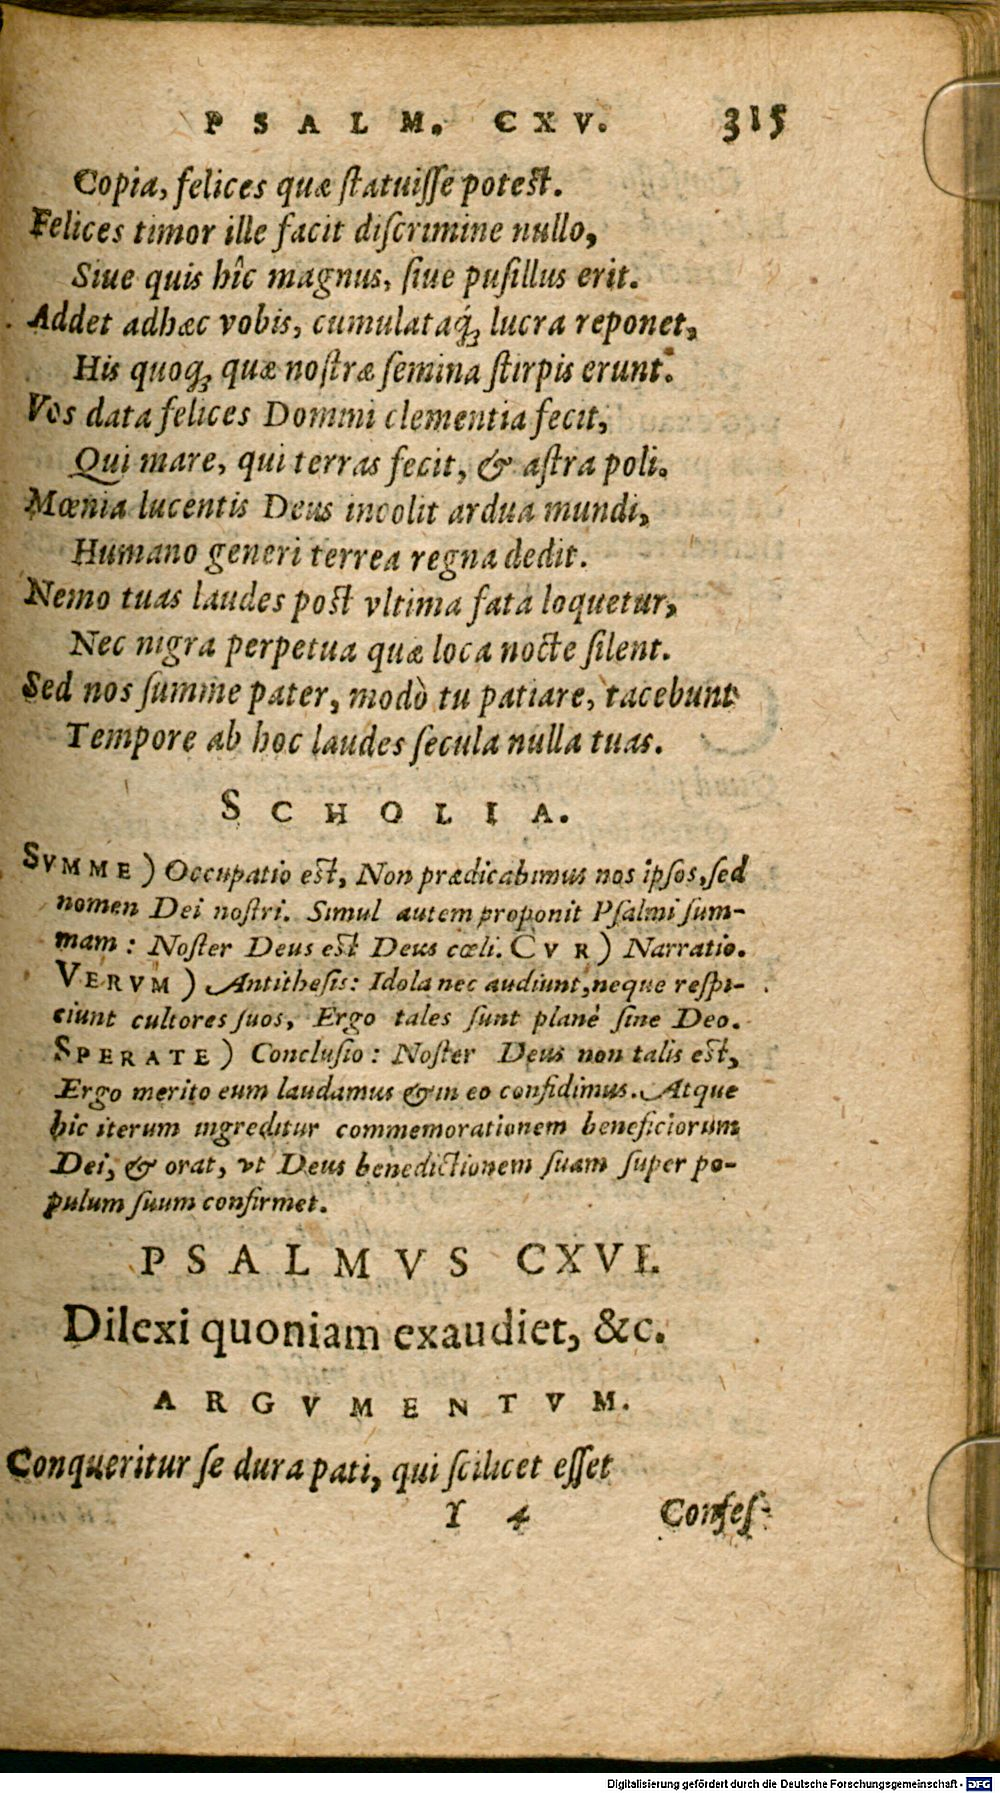 PSALM. CXV. 315
Copia, felices quæ ſtatuiſſe poteſt.
Felices timor ille facit diſcrimine nullo,
Siue quis hîc magnus, ſiue puſillus erit.
Addet adhæc vobis, cumulataq́ꝫ lucra reponet,
His quoqꝫ quæ noſtræ ſemina ſtirpis erunt.
Vos data felices Domini clementia fecit,
Qui mare, qui terras fecit, & aſtra poli.
Mœnia lucentis Deus incolit ardua mundi,
Humano generi terrea regna dedit.
Nemo tuas laudes poſt vltima fata loquetur,
Nec nigra perpetua quæ loca nocte ſilent.
Sed nos ſumme pater, modò tu patiare, tacebunt
Tempore ab hoc laudes ſecula nulla tuas.
SCHOLIA.
SVMME) Occupatio eſt, Non prædicabimus nos ipſos, ſed
nomen Dei noſtri. Simul autem proponit Pſalmi ſum-
mam: Noſter Deus eſt Deus cœli. CVR) Narratio.
VERVM) Antitheſis: Idola nec audiunt, neque reſpi-
ciunt cultores ſuos, Ergo tales ſunt planè ſine Deo.
SPERATE) Concluſio: Noſter Deus non talis eſt,
Ergo merito eum laudamus & in eo confidimus. Atque
hic iterum ingreditur commemorationem beneficiorum
Dei, & orat, vt Deus benedictionem ſuam ſuper po-
pulum ſuum confirmet.
PSALMVS CXVI.
Dilexi quoniam exaudiet, &c.
ARGVMENTVM.
Conqueritur ſe dura pati, qui ſcilicet eſſet
Y 4 Confeſ-
Digitalisierung gefördert durch die Deutsche Forschungsgemeinschaft - DFG